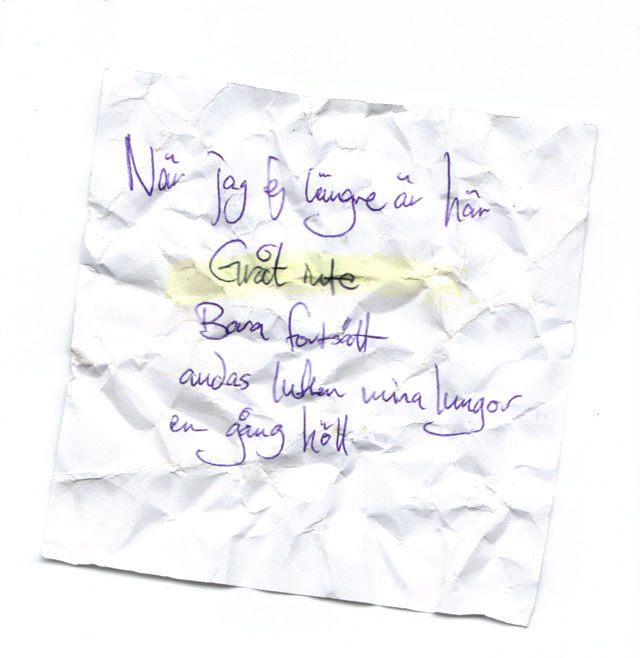 När jag ej längre är här
Gråt inte
Bara fortsätt
andas luften mina lungor
en gång höll